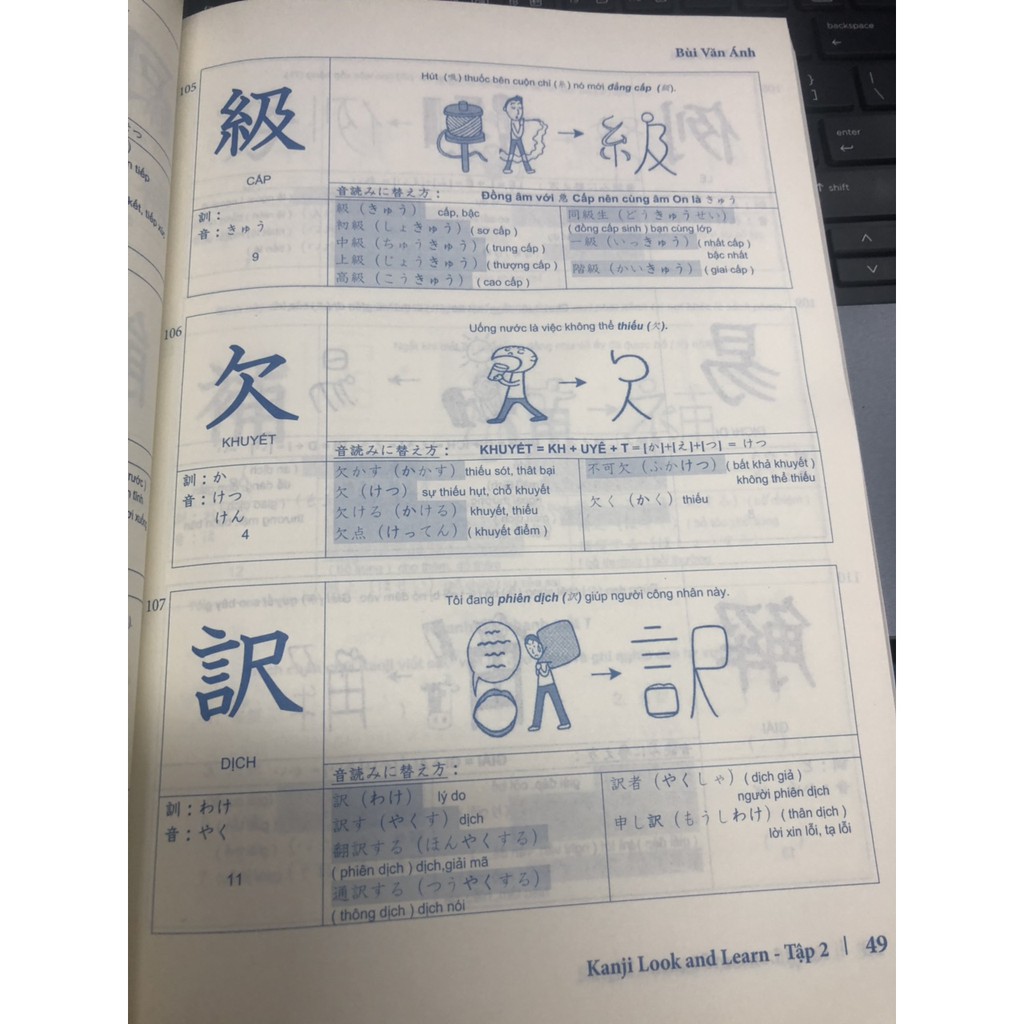 Bùi Văn Ánh
105
級
CẤP
Hút (吸) thuốc bên cuộn chỉ (糸) nó mới đẳng cấp (級).
級
訓：
音：きゅう
9
音読みに替え方： Đồng âm với 急 Cấp nên cùng âm On là きゅう
級（きゅう） cấp, bậc
初級（しょきゅう）( sơ cấp )
中級（ちゅうきゅう）( trung cấp )
上級（じょうきゅう）( thượng cấp )
高級（こうきゅう）( cao cấp )
同級生（どうきゅうせい）
( đồng cấp sinh ) bạn cùng lớp
一級（いっきゅう）( nhất cấp )
bậc nhất
階級（かいきゅう）( giai cấp )
106
欠
KHUYẾT
Uống nước là việc không thể thiếu (欠).
訓：か
音：けつ
けん
4
音読みに替え方： KHUYẾT = KH + UYÊ + T = |か|+|え|+|つ| = けつ
欠かす（かかす）thiếu sót, thât bại
欠（けつ） sự thiếu hụt, chỗ khuyết
欠ける（かける）khuyết, thiếu
欠点（けってん）( khuyết điểm )
不可欠（ふかけつ）( bất khả khuyết )
không thể thiếu
欠く（かく）thiếu
107
訳
DỊCH
Tôi đang phiên dịch (訳) giúp người công nhân này.
訳
訓：わけ
音：やく
11
音読みに替え方：
訳（わけ） lý do
訳す（やくす）dịch
翻訳する（ほんやくする）
( phiên dịch ) dịch,giải mã
通訳する（つうやくする）
( thông dịch ) dịch nói
訳者（やくしゃ）( dịch giả )
người phiên dịch
申し訳（もうしわけ）( thân dịch )
lời xin lỗi, tạ lỗi
Kanji Look and Learn - Tập 2 | 49
backspace
enter
shift